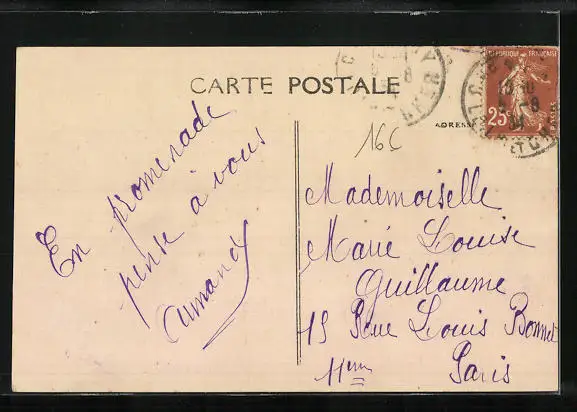 CARTE POSTALE
RÉPUBLIQUE FRANÇAISE
25c
ADRESSE
16C
En promenade
pense à vous
Armand
Mademoiselle
Marie Louise
Guillaume
19 Rue Louis Bonnet
11em
Paris